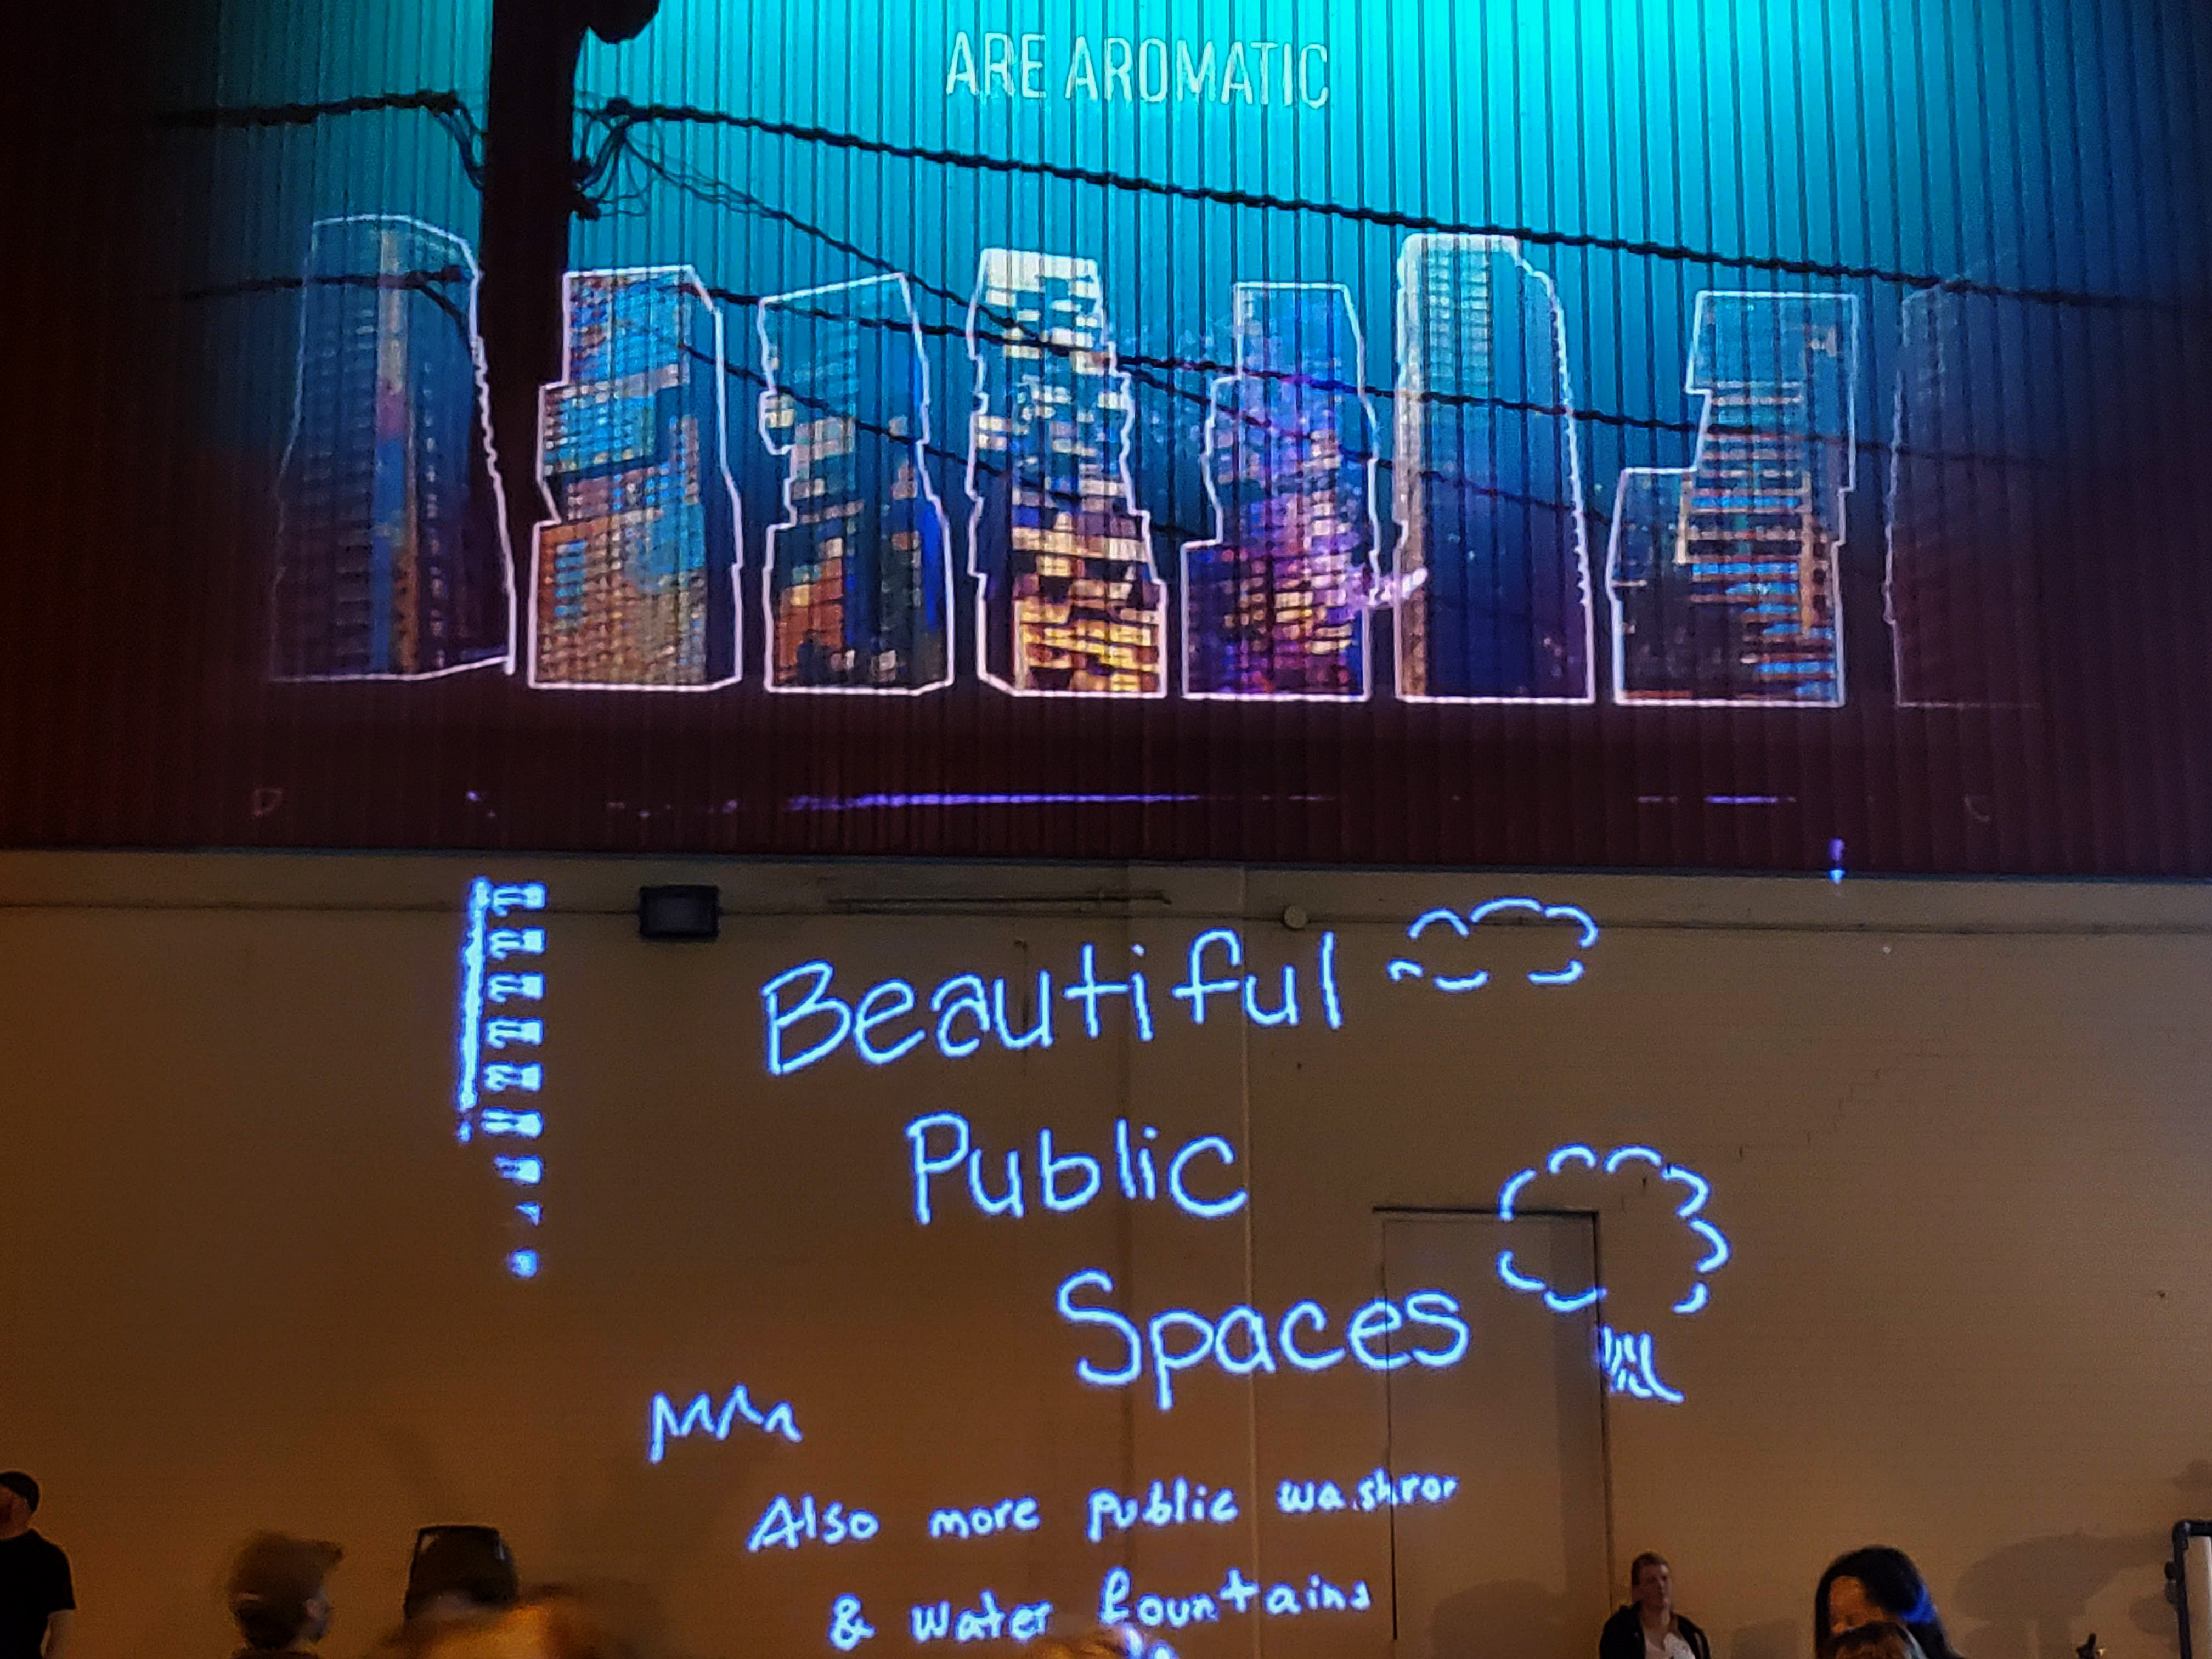 ARE AROMATIC
Beautiful
Public
Spaces
Also more public
& water fountains